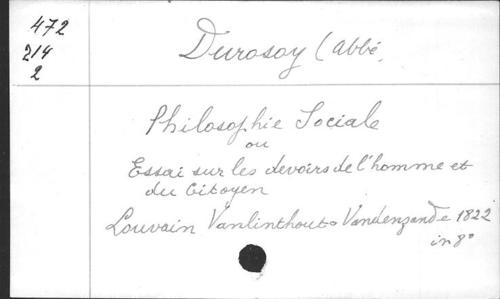 472
214
2
Durosoy (abbé,
Philosophie Sociale
ou
Essai sur les devoirs de l'homme et
du Citoyen
Louvain Vanlinthout & Vandenzande 1822
in 8°